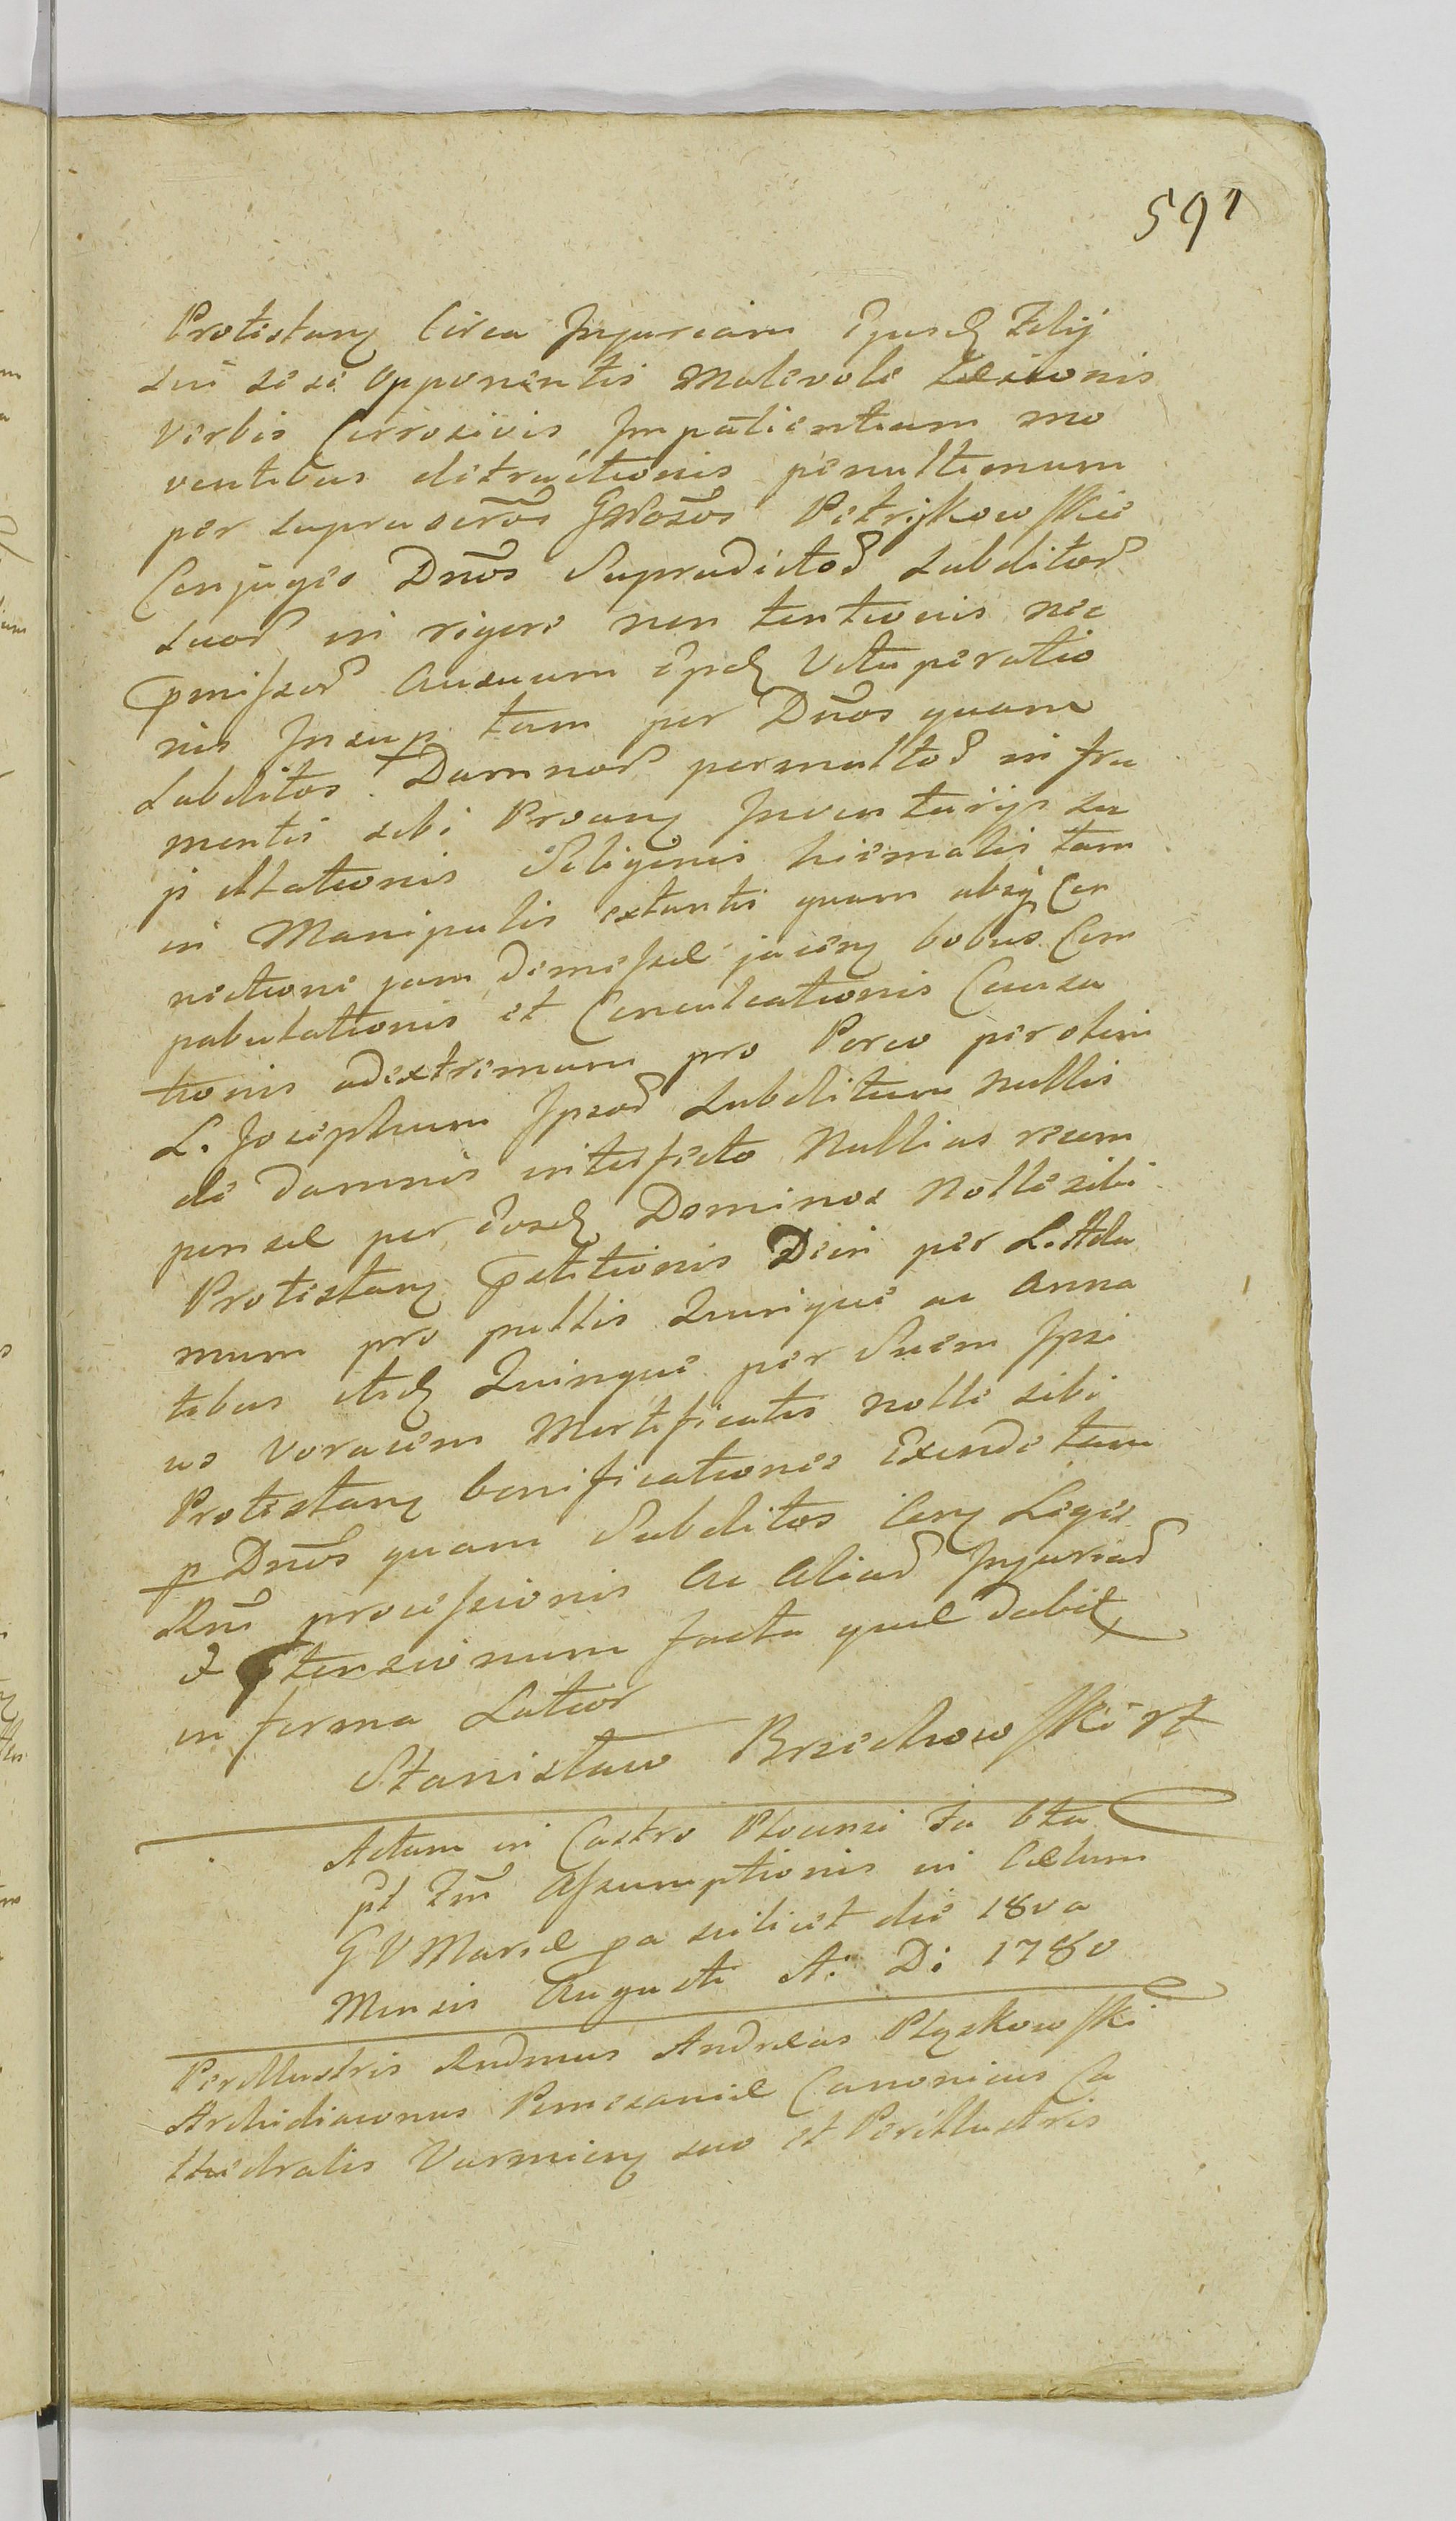 591
Protestanꝫ Circa Injuriam Ejusdꝫ Filij
sui sese opponentis Malevole Læsionis
verbis Corrosivis Impatientiam mo
ventibus detractionis penultimum
per suprascrõs GNosõs Petrykowskie
Conjuges Dños Supradictoꝝ subditoꝝ
suoꝝ in rigore non tentionis nec
pmissoꝝ Ausuum Ejꝫ Vituperatio
nis Insup tam per Dños quam
subditos. Damnoꝝ permultoꝝ in fru
mentis sibi Proanꝫ Inventarijs su
p Statutionis Siliginis hiemalis tam
in Manipulis extantis quam absq Con
nectione jam demissæ jacenꝫ bobus Com
pabulationis et Conculcationis Causa
tionis adextremum pro Porco per olim
L. Josephum Ipsoꝝ subditum nullis
de damnis interfecto Nullius recom
pensæ per eosdꝫ Dominos Nolle sibi
Protestanꝫ pstitionis Dein per L. Ada
mum pro pullis Quinque ac Anna
tibus itidꝫ Quinque per Suem Ipsi
us voracem Mortificatis nolle sibi
Protestanꝫ bonificationes Exinde tam
p Dños quam Subditos Conꝫ Leges
Rñi processionis Ac Aliaꝝ Injuriaꝝ
tensionum facta quæ dabit
in forma Latior
Stanisław Brzechowski
Actum in Castro Plocensi Fa 6ta
pt Fm̃ Assumptionis in Cælum
G V Mariæ pa scilicet die 18va
Mensis Augusti A: D: 1780
Perillustris Rndmus Andreas Plgskowski
Archidiaconus Pomesaniæ Canonicus Ca
thedralis Varmienꝫ suo et Perillustris